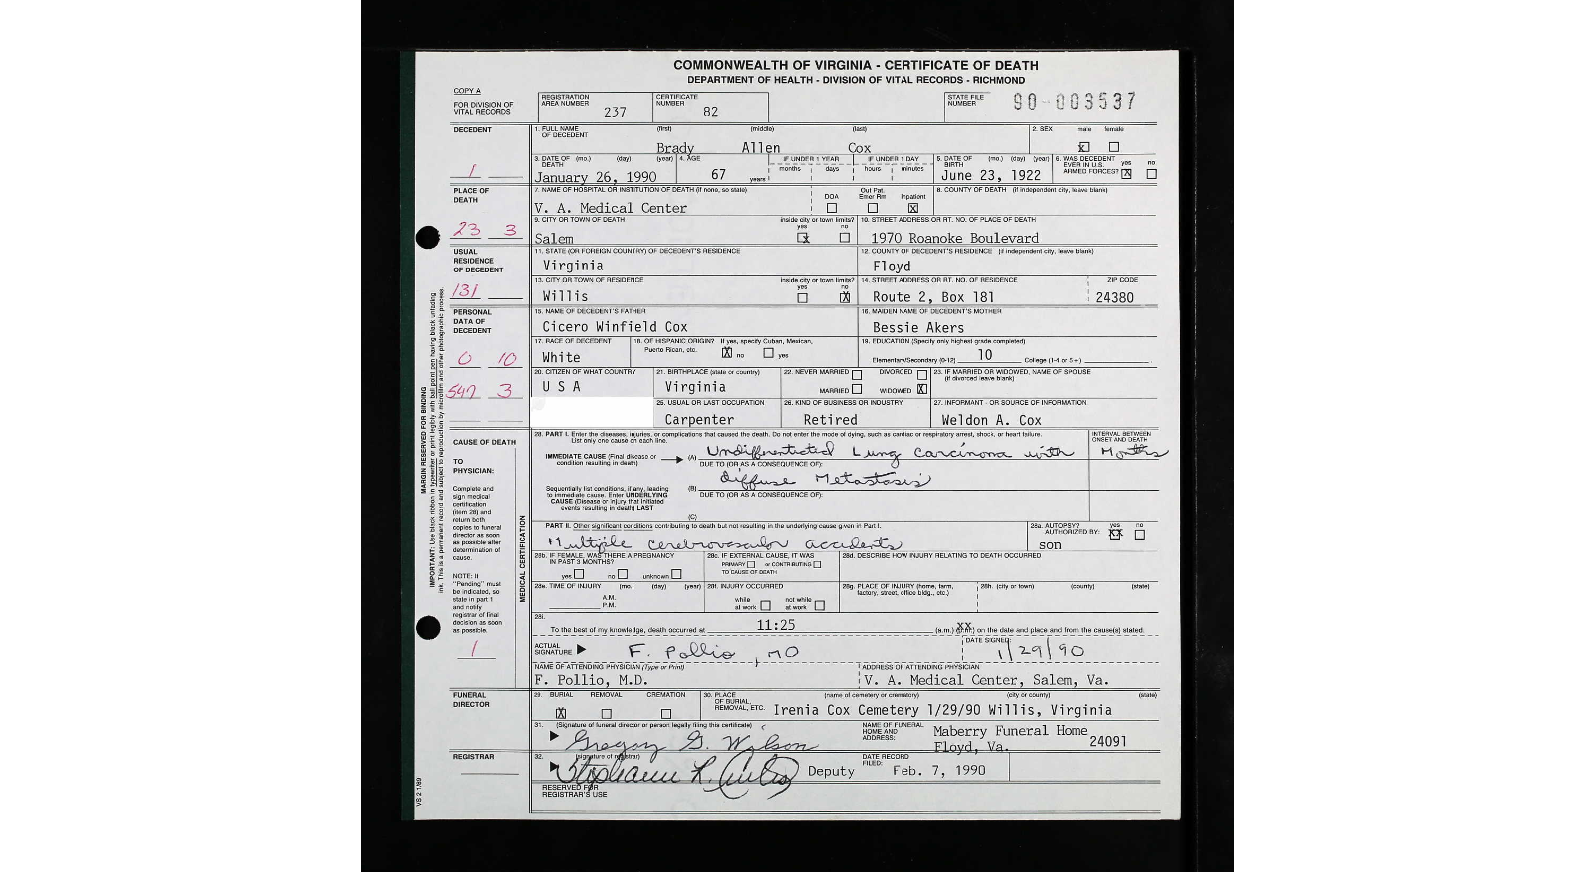 COMMONWEALTH OF VIRGINIA - CERTIFICATE OF DEATH
DEPARTMENT OF HEALTH - DIVISION OF VITAL RECORDS - RICHMOND
COPY A
FOR DIVISION OF VITAL RECORDS
REGISTRATION AREA NUMBER 237
CERTIFICATE NUMBER 82
STATE FILE NUMBER 90-003537
DECEDENT
1. FULL NAME OF DECEDENT (first) (middle) (last)
Brady Allen Cox
2. SEX male female
X
1
3. DATE OF DEATH (mo.) (day) (year)
January 26, 1990
4. AGE 67 years
IF UNDER 1 YEAR months days
IF UNDER 1 DAY hours minutes
5. DATE OF BIRTH (mo.) (day) (year)
June 23, 1922
6. WAS DECEDENT EVER IN U.S. ARMED FORCES? yes no
X
PLACE OF DEATH
23 3
7. NAME OF HOSPITAL OR INSTITUTION OF DEATH (if none, so state)
V. A. Medical Center
DOA Out Pat. Emer Rm Inpatient
X
8. COUNTY OF DEATH (if independent city, leave blank)
9. CITY OR TOWN OF DEATH
Salem
inside city or town limits? yes no
X
10. STREET ADDRESS OR RT. NO. OF PLACE OF DEATH
1970 Roanoke Boulevard
USUAL RESIDENCE OF DECEDENT
131
11. STATE (OR FOREIGN COUNTRY) OF DECEDENT'S RESIDENCE
Virginia
12. COUNTY OF DECEDENT'S RESIDENCE (if independent city, leave blank)
Floyd
13. CITY OR TOWN OF RESIDENCE
Willis
inside city or town limits? yes no
X
14. STREET ADDRESS OR RT. NO. OF RESIDENCE
Route 2, Box 181
ZIP CODE
24380
PERSONAL DATA OF DECEDENT
0 10
597 3
15. NAME OF DECEDENT'S FATHER
Cicero Winfield Cox
16. MAIDEN NAME OF DECEDENT'S MOTHER
Bessie Akers
17. RACE OF DECEDENT
White
18. OF HISPANIC ORIGIN? If yes, specify Cuban, Mexican, Puerto Rican, etc.
X no yes
19. EDUCATION (Specify only highest grade completed)
Elementary/Secondary (0-12) 10 College (1-4 or 5+)
20. CITIZEN OF WHAT COUNTRY
U S A
21. BIRTHPLACE (state or country)
Virginia
22. NEVER MARRIED DIVORCED
MARRIED WIDOWED X
23. IF MARRIED OR WIDOWED, NAME OF SPOUSE (if divorced leave blank)
25. USUAL OR LAST OCCUPATION
Carpenter
26. KIND OF BUSINESS OR INDUSTRY
Retired
27. INFORMANT - OR SOURCE OF INFORMATION
Weldon A. Cox
CAUSE OF DEATH
TO PHYSICIAN:
Complete and sign medical certification (item 28) and return both copies to funeral director as soon as possible after determination of cause.
NOTE: If "Pending" must be indicated, so state in part 1 and notify registrar of final decision as soon as possible.
1
28. PART I. Enter the diseases, injuries, or complications that caused the death. Do not enter the mode of dying, such as cardiac or respiratory arrest, shock, or heart failure.
List only one cause on each line.
INTERVAL BETWEEN ONSET AND DEATH
IMMEDIATE CAUSE (Final disease or condition resulting in death)
(A) Undifferenticted Lung carcinoma with Months
DUE TO (OR AS A CONSEQUENCE OF):
Sequentially list conditions, if any, leading to immediate cause. Enter UNDERLYING CAUSE (Disease or injury that initiated events resulting in death) LAST
(B) diffuse Metastasis
DUE TO (OR AS A CONSEQUENCE OF):
(C)
PART II. Other significant conditions contributing to death but not resulting in the underlying cause given in Part I.
Multiple cerebrovascular accidents
28a. AUTOPSY? AUTHORIZED BY: yes no
XX
son
28b. IF FEMALE, WAS THERE A PREGNANCY IN PAST 3 MONTHS?
yes no unknown
28c. IF EXTERNAL CAUSE, IT WAS
PRIMARY or CONTRIBUTING
TO CAUSE OF DEATH
28d. DESCRIBE HOW INJURY RELATING TO DEATH OCCURRED
28e. TIME OF INJURY (mo. (day) (year)
A.M.
P.M.
28f. INJURY OCCURRED
while at work not while at work
28g. PLACE OF INJURY (home, farm, factory, street, office bldg., etc.)
28h. (city or town) (county) (state)
28i.
To the best of my knowledge, death occurred at 11:25 (a.m.) (p.m.) on the date and place and from the cause(s) stated.
xx
ACTUAL SIGNATURE F. Pollio, MD
DATE SIGNED: 1/29/90
NAME OF ATTENDING PHYSICIAN (Type or Print)
F. Pollio, M.D.
ADDRESS OF ATTENDING PHYSICIAN
V. A. Medical Center, Salem, Va.
FUNERAL DIRECTOR
29. BURIAL REMOVAL CREMATION
X
30. PLACE OF BURIAL, REMOVAL, ETC. (name of cemetery or crematory) (city or county) (state)
Irenia Cox Cemetery 1/29/90 Willis, Virginia
31. (Signature of funeral director or person legally filing this certificate)
Gregory G. Wilson
NAME OF FUNERAL HOME AND ADDRESS:
Maberry Funeral Home
Floyd, Va. 24091
REGISTRAR
32. (signature of registrar)
Deputy
DATE RECORD FILED: Feb. 7, 1990
RESERVED FOR REGISTRAR'S USE
MARGIN RESERVED FOR BINDING
IMPORTANT: Use black ribbon in typewriter or print legibly with ball point pen having black unfading ink. This is a permanent record and subject to reproduction by microfilm and other photographic process.
MEDICAL CERTIFICATION
VS 2 1/89